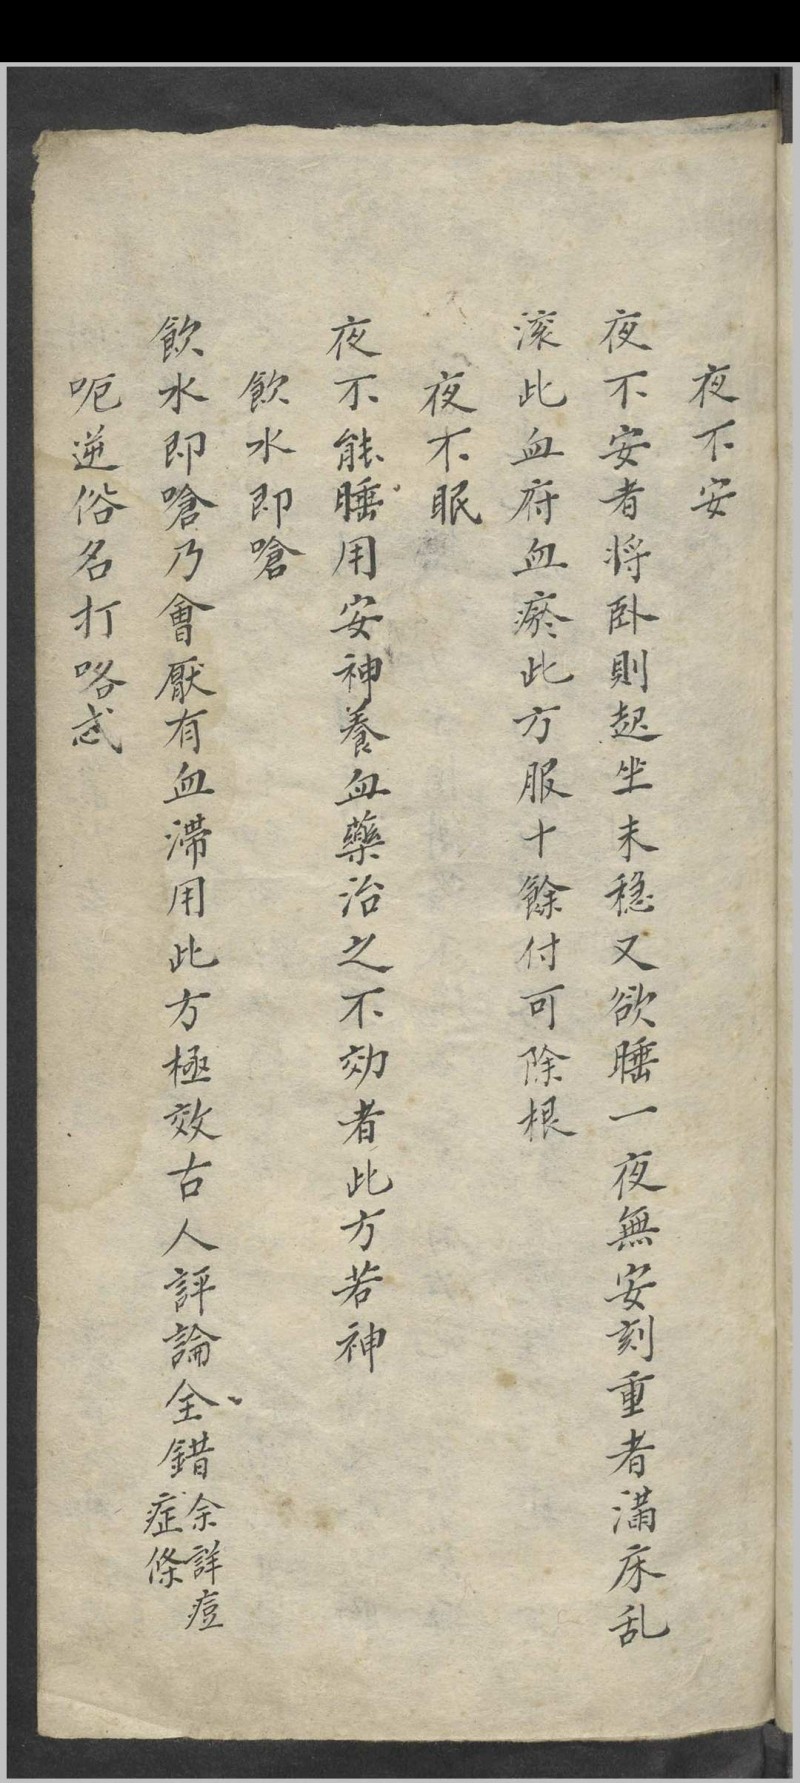 夜不安
夜不安者将卧則起坐未穏又欲睡一夜無安刻重者滿床乱
滚此血府血瘀此方服十餘付可除根
夜不眠
夜不能睡用安神養血藥治之不効者此方若神
飲水即嗆
飲水即嗆乃會厭有血滯用此方極效古人評論全錯余詳痘
症條
呃逆俗名打咯忒